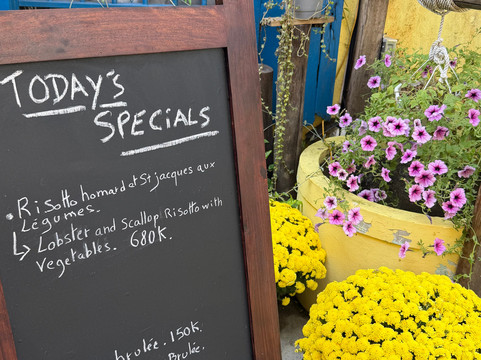 TODAY'S
SPECIALS
• Risotto homard et St jacques aux
Légumes.
↳ Lobster and Scallop Risotto with
vegetables. 680K.
brulée. 150K.
Brulée.